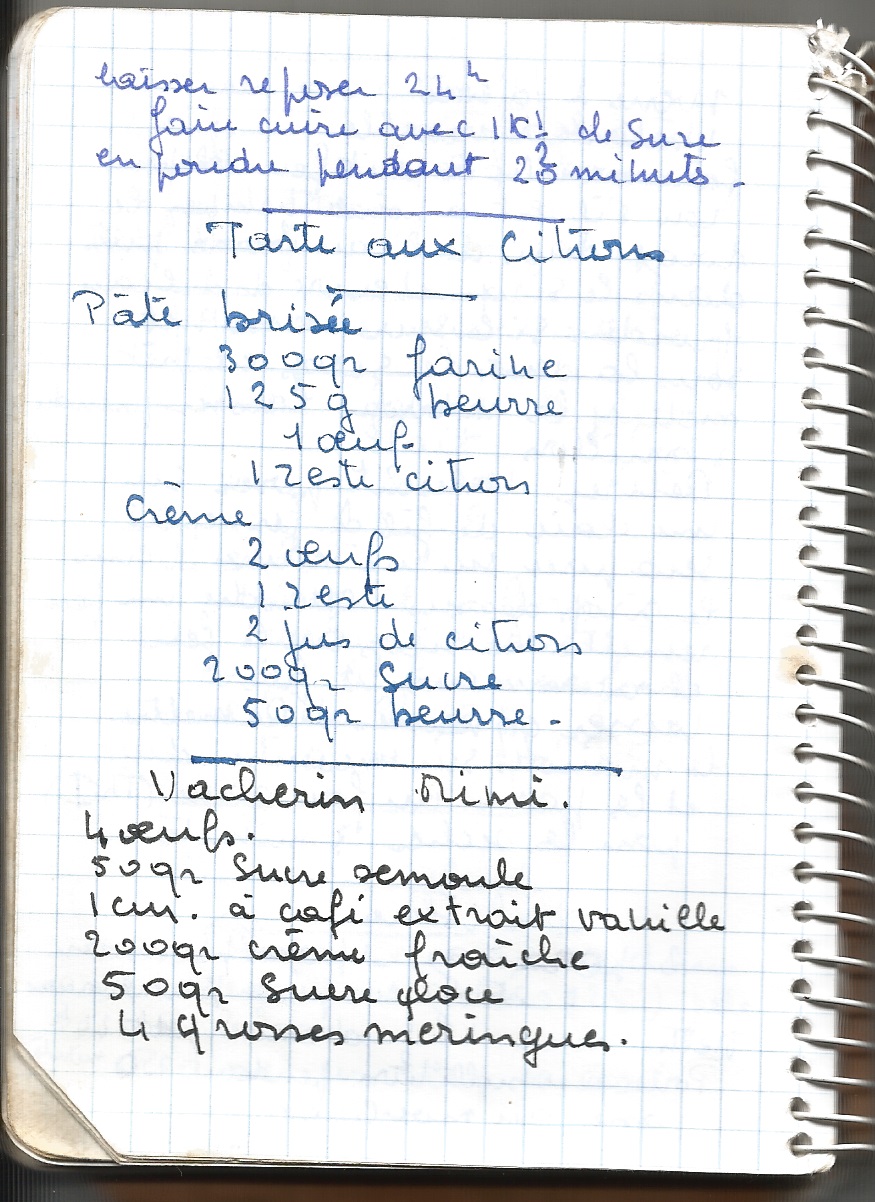 laisser reposer 24h
faire cuire avec 1 Kl de Sucre
en poudre pendant minuts.
Tarte aux Citrons
Pâte brisée
300gr farine
125g beurre
1 œuf
1 zeste citron
Crème
2 œufs
1 zeste
2 jus de citrons
200gr Sucre
50gr beurre.
Vacherin Mimi.
4 œufs.
50gr Sucre semoule
1 cui. à café extrait vanille
200gr crème fraîche
50gr Sucre glace
4 grosses meringues.